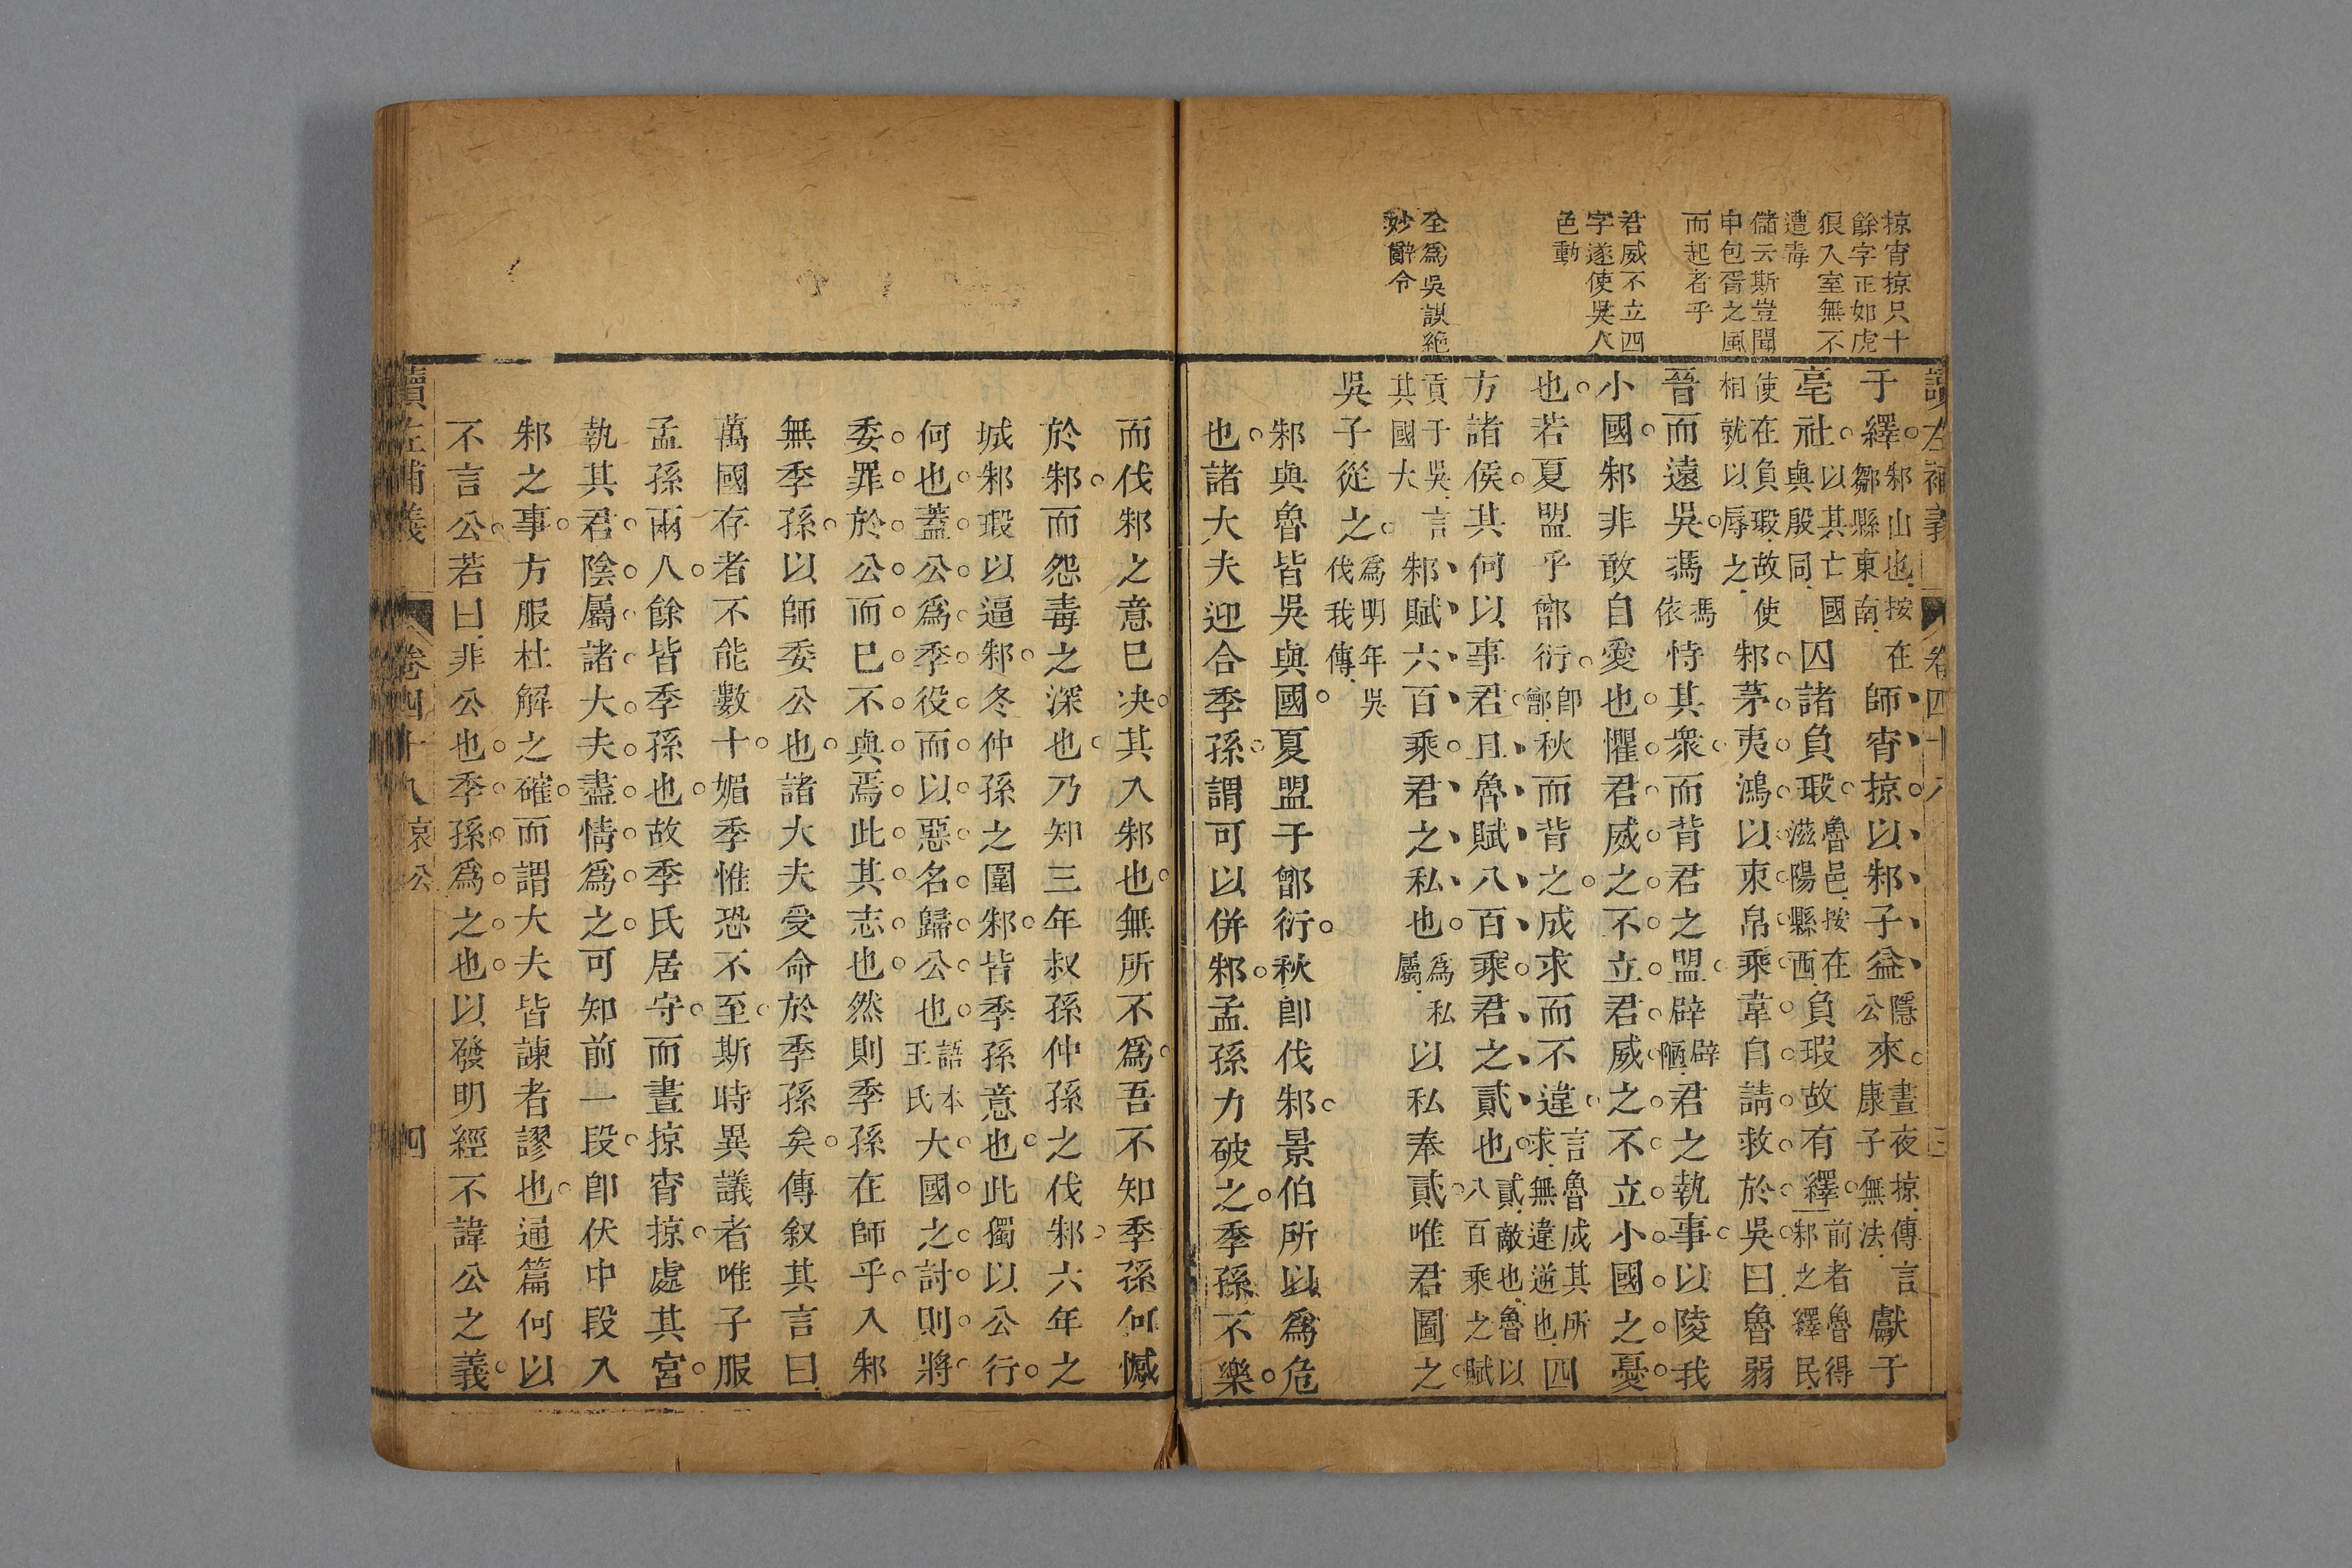 讀左補義 卷四十八 三
掠宵掠只十
餘字正如虎
狠入室無不
遭毒
儲云斯豈聞
申包胥之風
而起者乎
君威不立四
字遂使吳人
色動
全爲吳謀絕
妙辭令
于繹。邾山也按在鄒縣東南師宵掠。以邾子益隱公來。晝夜掠傳言康子無法獻子
亳社。以其亡國與殷同囚諸負瑕。魯邑按在滋陽縣西負瑕故有繹。前者魯得邾之繹民
使在負瑕故使相就以辱之邾茅夷鴻以束帛乘韋自請救於吳曰魯弱
晉而遠吳。馮馮依恃其衆而背君之盟。辟辟陋君之執事。以陵我
小國。邾非敢自愛也。懼君威之不立。君威之不立。小國之憂。
也。若夏盟乎鄫衍。卽鄫秋而背之。成求而不違。言魯成其所求無違逆也四
方諸侯。其何以事君。且魯賦八百乘。君之貳也。貳敵也魯以八百乘之賦
貢于吳言其國大邾賦六百乘。君之私也。爲私屬以私奉貳。唯君圖之。
吳子從之。爲明年吳伐我傳
邾與魯皆吳與國。夏盟于鄫衍。秋卽伐邾。景伯所以爲危
也。諸大夫迎合季孫。謂可以併邾。孟孫力破之。季孫不樂。
而伐邾之意已决。其入邾也。無所不爲。吾不知季孫何憾
於邾。而怨毒之深也。乃知三年叔孫仲孫之伐邾。六年之
城邾瑕以逼邾。冬仲孫之圍邾。皆季孫意也。此獨以公行。
何也。蓋公爲季役。而以惡名歸公也。語本王氏大國之討。則將
委罪於公而已。不與焉。此其志也。然則季孫在師乎。入邾
無季孫。以師委公也。諸大夫受命於季孫矣。傳叙其言曰
萬國存者不能數十。媚季惟恐不至。斯時異議者唯子服
孟孫兩人。餘皆季孫也。故季氏居守。而晝掠宵掠。處其宮。
執其君。陰屬諸大夫盡情爲之。可知前一段。卽伏中段入
邾之事。方服杜解之確。而謂大夫皆諫者謬也。通篇何以
不言公。若曰非公也。季孫爲之也。以發明經不諱公之義。
讀左補義 卷四十八 哀公 四